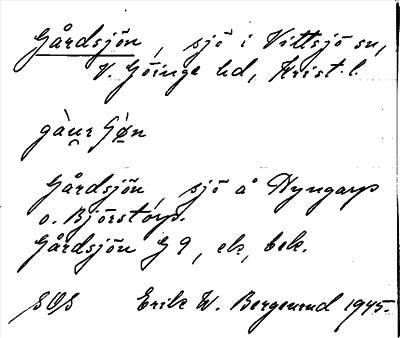 Gårdsjön, sjö i Vittsjö sn,
V. Göinge hd, Krist. l.
gàu̯r Gø̀n
Gårdsjön, sjö å Nyngarp
o. Björstorp.
Gårdsjön G 9, ek, bek.
SOS Erik W. Bergenrud 1945.